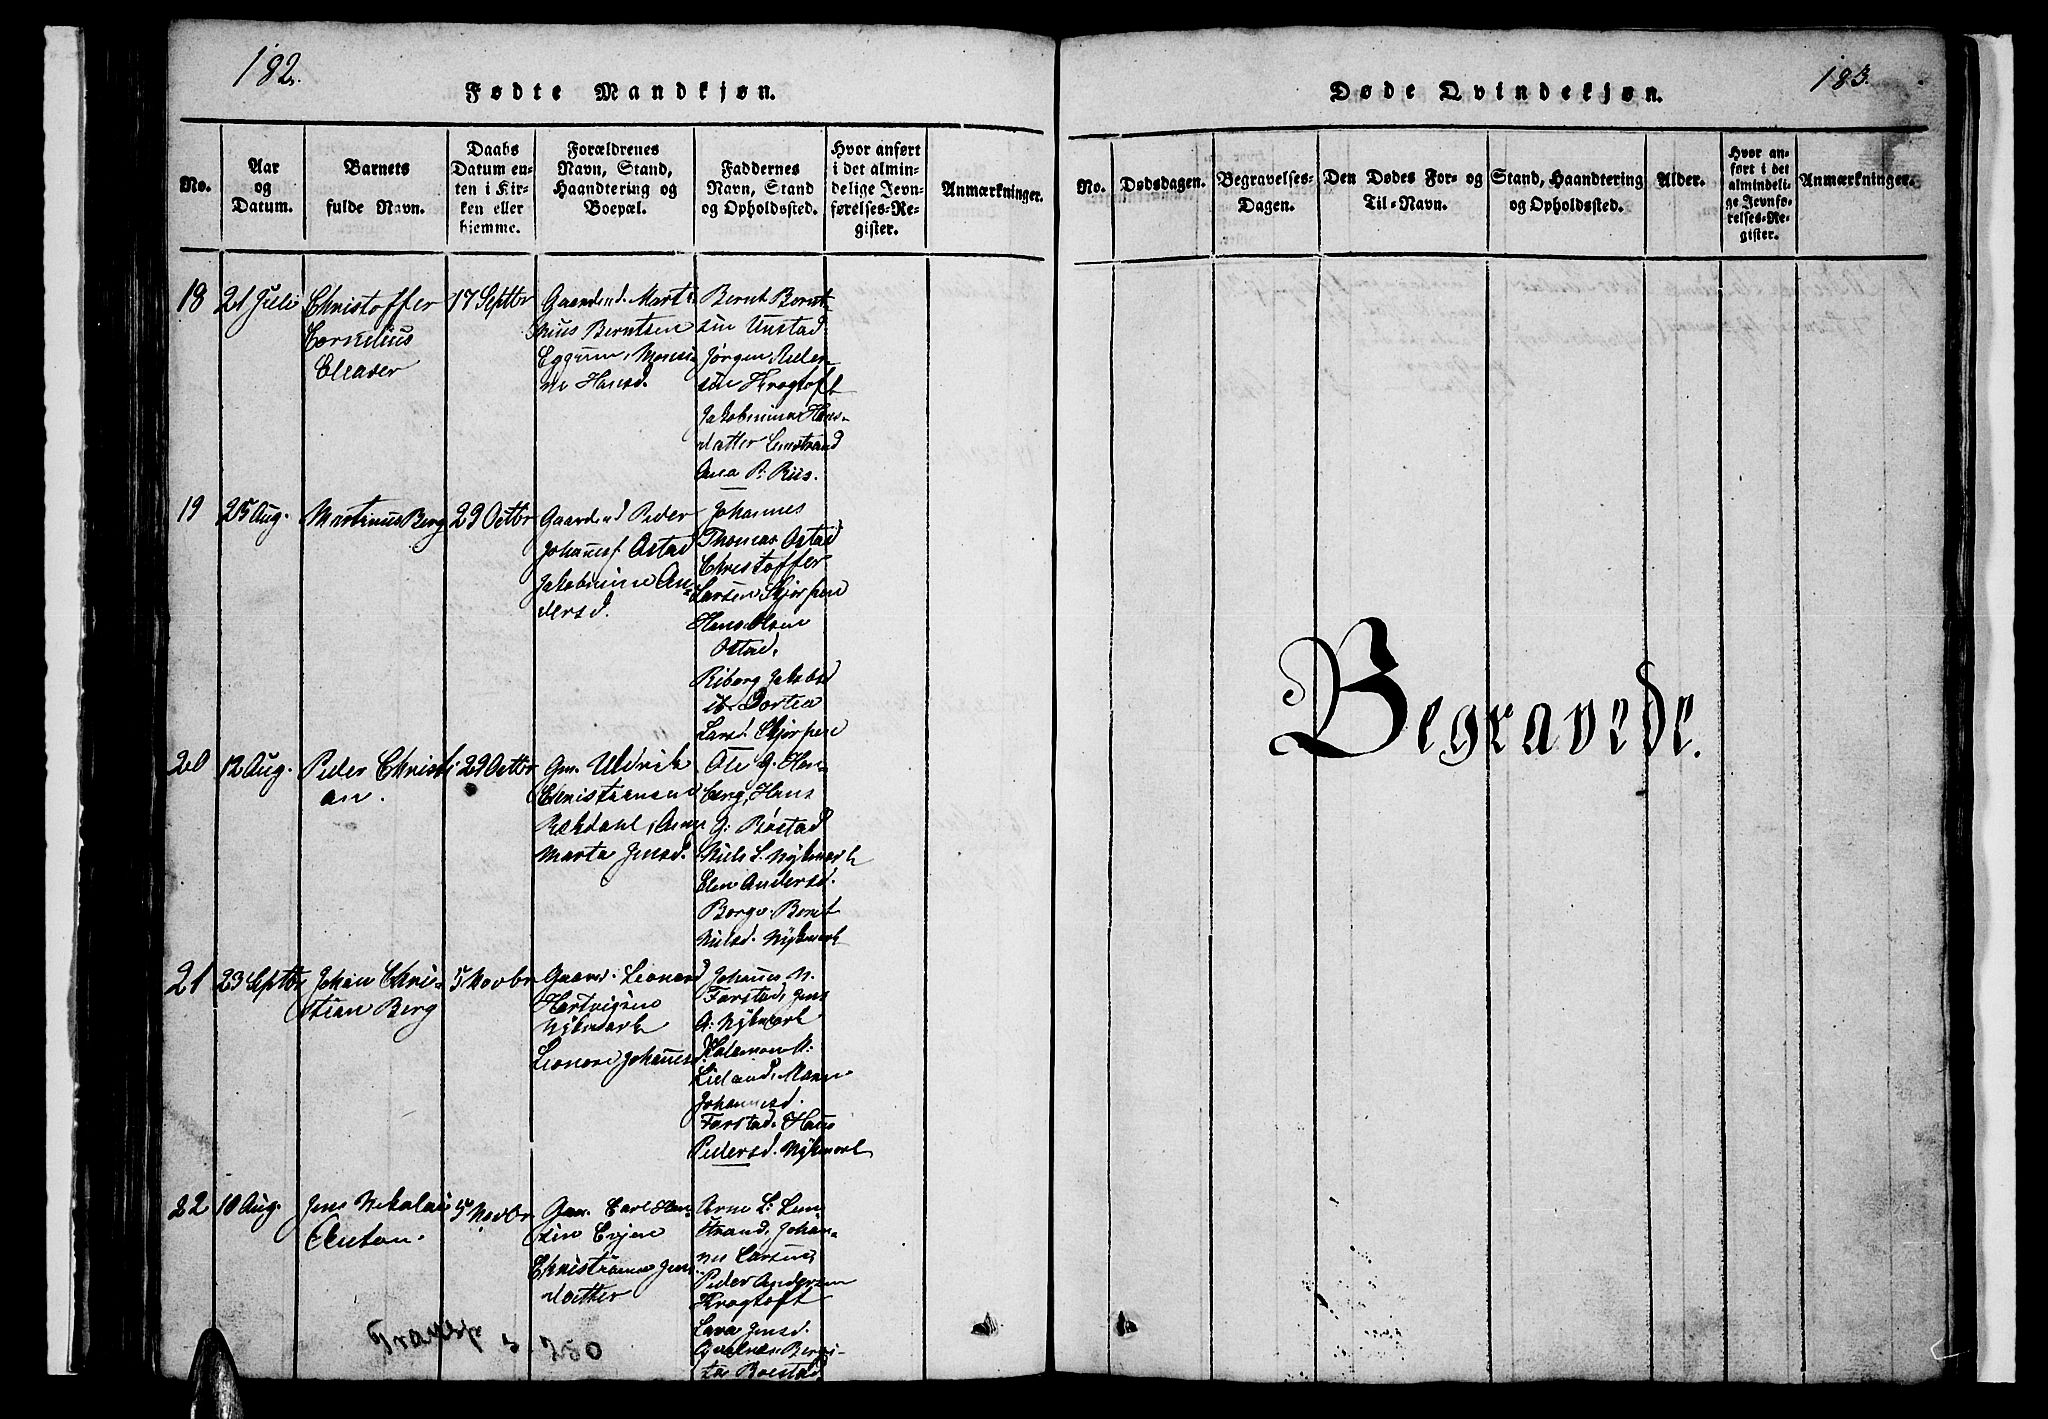 182.
Fødte Mandkjøn.
No.
Aar og Datum.
Barnets fulde Navn.
Daabs Datum enten i Kirken eller hjemme.
Forældrenes Navn, Stand, Haandtering og Boepæl.
Faddernes Navn, Stand og Opholdssted.
Hvor anført i det almindelige Jevnførelses-Register.
Anmærkninger.
18
21 Juli
Christoffer
Cornelius
Eleaser
17 Septbr
Gaardmd. Marti
nus Berntsen
Eggum,
ne Hansd.
Bernt Bernt
sen Unstad
Jørgen Peder
sen Krogtoft
Jakobmina Hans
datter Limstrand
Ana P. Riis.
19
25 Aug.
Martinus Berg
29 Octbr
Gaardmd Peder
Johanes. Ostad
Jakobmine An
dersd.
Johannes
Thomas Ostad
Christoffer
Larsen Skjørpen
Hans Olsen
Ostad,
Riborg Jakobsd
ib. Dortea
Larsd. Skjørpen
20
12 Aug.
Peder Christi
an.
29 Octbr
Gm. Uldrik
Christiansen
Rækdahl, Anne
Marta Jensd.
Ole G. Han
berg, Hans
G. Bøstad
Niels L. Nykmark
Elen Andersd.
Borge. Beret
Nielsd. Nykmark
21
23 Septbr
Johan Chris
tian Berg
5 Novbr
Gaard. Leonard
Hartvigsen
Nykmark
Leonard Johanesd.
Johanes N.
Farstad, Jens
A. Nykmark
Salamon M.
Lieland, Maren
Johannesd.
Farstad. Hans
Pedersd. Nykmark
22
10 Aug.
Jens Nikolai
Anton.
5 Novbr
Gm. Carl Han
sen Evjen
Christianne Jens
datter
Arne L. Lim
strand, Johan
nes Larsen,
Peder Andersen
Krogtoft
Lava Jensd.
Bergi
ta Bolstad
250
183.
Døde Qvindekjøn.
No.
Dødsdagen.
Begravelses-Dagen.
Den Dødes For- og Til-Navn.
Stand, Haandtering og Opholdssted.
Alder.
Hvor anført i det almindelige Jevnførelses-Register.
Anmærkninger.
Begravede.